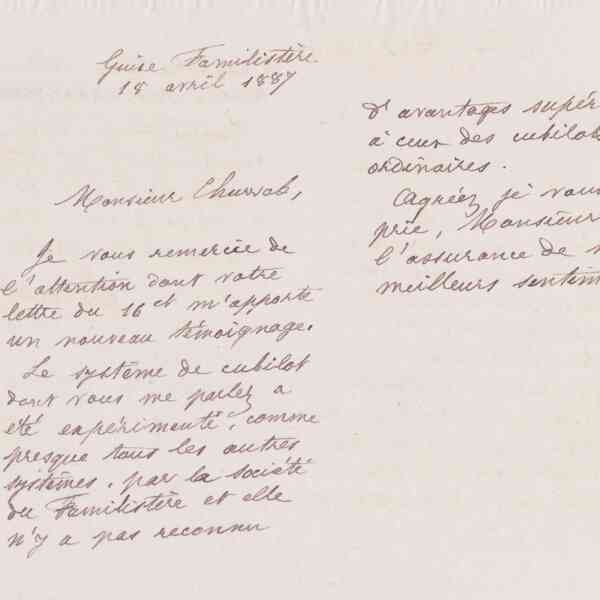 Guise Familistère
18 avril 1887
Monsieur
Je vous remercie de
l'attention dont votre
lettre du 16 ct m'apporte
un nouveau témoignage.
Le système de cubilot
dont vous me parlez a
été expérimenté, comme
presque tous les autres
systèmes, par la société
du Familistère et elle
n'y a pas reconnu
d'avantages supér
à ceux des cubilots
ordinaires.
Agréez je vous
prie, Monsieur
l'assurance de
meilleurs sentim